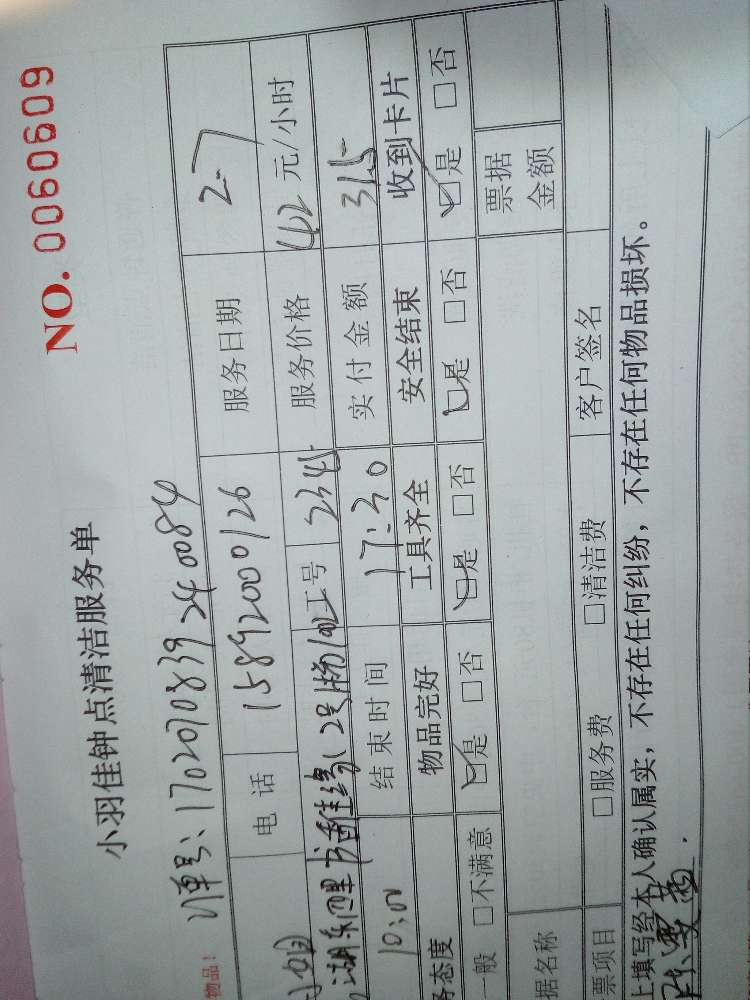 NO. 0060609
小羽佳钟点清洁服务单
物品！
订单号：1702070839240084
电话 15892000126 服务日期 2-7
工号 2345 服务价格 42 元/小时
10:00 结束时间 17:30 实付金额 315
务态度 物品完好 工具齐全 安全结束 收到卡片
一般 □不满意 ☑是 □否 ☑是 □否 ☑是 □否 ☑是 □否
据名称 票据金额
票项目 □服务费 □清洁费 客户签名
上填写经本人确认属实，不存在任何纠纷，不存在任何物品损坏。